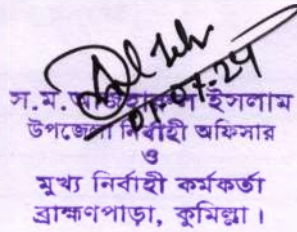 01-07-24
স.ম. আজহারুল ইসলাম
উপজেলা নির্বাহী অফিসার
ও
মুখ্য নির্বাহী কর্মকর্তা
ব্রাহ্মণপাড়া, কুমিল্লা।